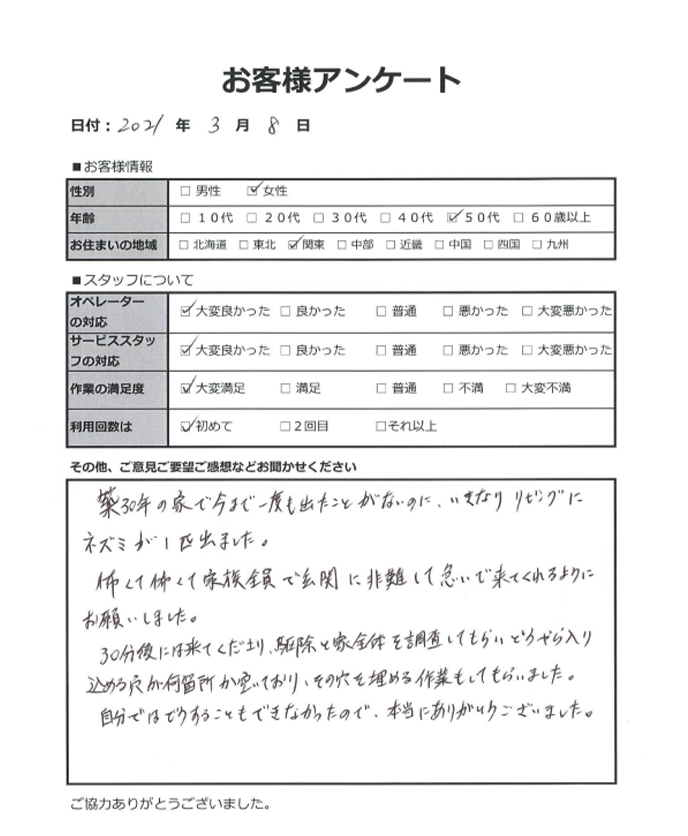 お客様アンケート
日付：2021 年 3 月 8 日
■お客様情報
性別 □ 男性 ☑ 女性
年齢 □ 10代 □ 20代 □ 30代 □ 40代 ☑ 50代 □ 60歳以上
お住まいの地域 □ 北海道 □ 東北 ☑ 関東 □ 中部 □ 近畿 □ 中国 □ 四国 □ 九州
■スタッフについて
オペレーターの対応 ☑ 大変良かった □ 良かった □ 普通 □ 悪かった □ 大変悪かった
サービススタッフの対応 ☑ 大変良かった □ 良かった □ 普通 □ 悪かった □ 大変悪かった
作業の満足度 ☑ 大変満足 □ 満足 □ 普通 □ 不満 □ 大変不満
利用回数は ☑ 初めて □ 2回目 □ それ以上
その他、ご意見ご要望ご感想などお聞かせください
築30年の家で今まで一度も出たことがないのに、いきなりリビングに
ネズミが1匹出ました。
怖くて怖くて家族全員で玄関に非難して急いで来てくれるように
お願いしました。
30分後には来てくださり、駆除と家全体を調査してもらいどうやら入り
込める穴が何箇所か空いており、その穴を埋める作業もしてもらいました。
自分ではどうすることもできなかったので、本当にありがとうございました。
ご協力ありがとうございました。